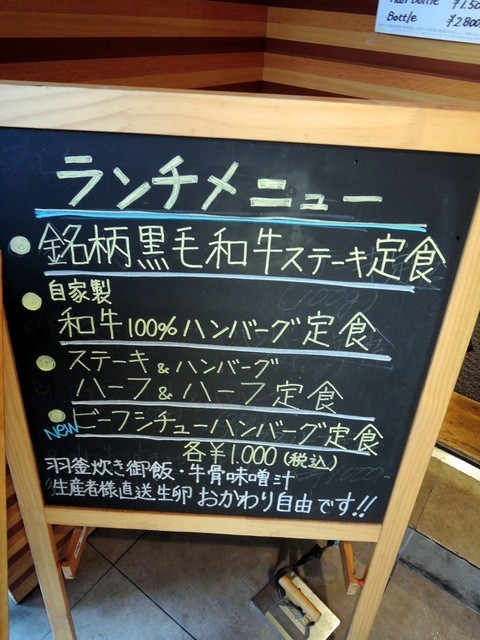 Half Bottle ¥1.50
Bottle ¥2.800
ランチメニュー
銘柄黒毛和牛ステーキ定食
自家製
和牛100%ハンバーグ定食
ステーキ&ハンバーグ
ハーフ&ハーフ定食
NEW ビーフシチューハンバーグ定食
各¥1.000(税込)
羽釜炊き御飯・牛骨味噌汁
生産者様直送生卵 おかわり自由です!!